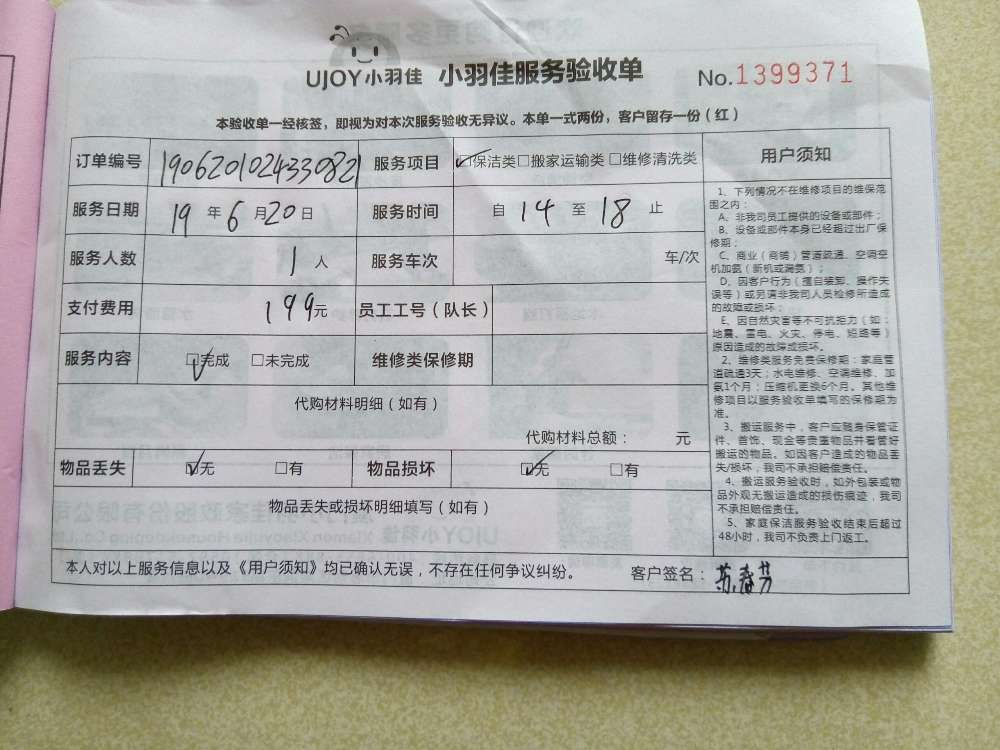 UJOY小羽佳 小羽佳服务验收单 No.1399371
本验收单一经核签，即视为对本次服务验收无异议。本单一式两份，客户留存一份（红）
订单编号 190620102433082 服务项目 ☑保洁类□搬家运输类□维修清洗类
服务日期 19年6月20日 服务时间 自14至18止
服务人数 1人 服务车次 车/次
支付费用 199元 员工工号（队长）
服务内容 ☑完成 □未完成 维修类保修期
代购材料明细（如有）
代购材料总额： 元
物品丢失 ☑无 □有 物品损坏 ☑无 □有
物品丢失或损坏明细填写（如有）
本人对以上服务信息以及《用户须知》均已确认无误，不存在任何争议纠纷。 客户签名：苏春芳
用户须知
1、下列情况不在维修项目的维保范
围之内：
A、非我司员工提供的设备或部件；
B、设备或部件本身已经超过出厂保
修期；
C、商业（商铺）管道疏通、空调空
机加氨（新机或漏氨）；
D、因客户行为（擅自装卸、操作失
误等）或另请非我司人员检修所造成
的故障或损坏；
E、因自然灾害等不可抗拒力（如：
地震、雷电、火灾、停电、短路等）
原因造成的故障或损坏。
2、维修类服务免费保修期：家庭管
道疏通3天；水电维修、空调维修、加
氨1个月；压缩机更换6个月。其他维
修项目以服务验收单填写的保修期为
准。
3、搬运服务中，客户应随身保管证
件、首饰、现金等贵重物品并看管好
搬运的物品。如因客户造成的物品丢
失/损坏，我司不承担赔偿责任。
4、搬运服务验收时，如外包装或物
品外观无搬运造成的损伤痕迹，我司
不承担赔偿责任。
5、家庭保洁服务验收结束后超过
48小时，我司不负责上门返工。